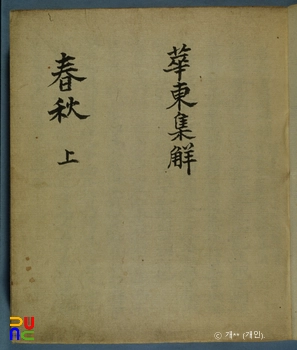 華東集解
春秋
上
ⓒ 개** (개인).